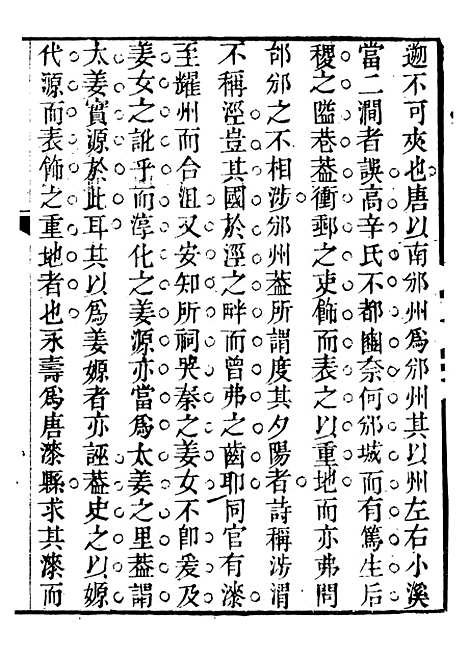 邇不可夾也唐以南邠州爲邠州其以州左右小溪
當二澗者誤高辛氏不都豳奈何邠城而有篤生后
稷之隘巷葢衝郵之吏飾而表之以重地而亦弗問
邰邠之不相涉邠州葢所謂度其夕陽者詩稱涉渭
不稱涇豈其國於涇之畔而曾弗之齒耶同官有漆
至耀州而合沮又安知所祠哭秦之姜女不卽爰及
姜女之訛乎而淳化之姜源亦當爲太姜之里葢謂
太姜實源於此耳其以爲姜嫄者亦誣葢史之以嫄
代源而表飾之重地者也永壽爲唐漆縣求其漆而